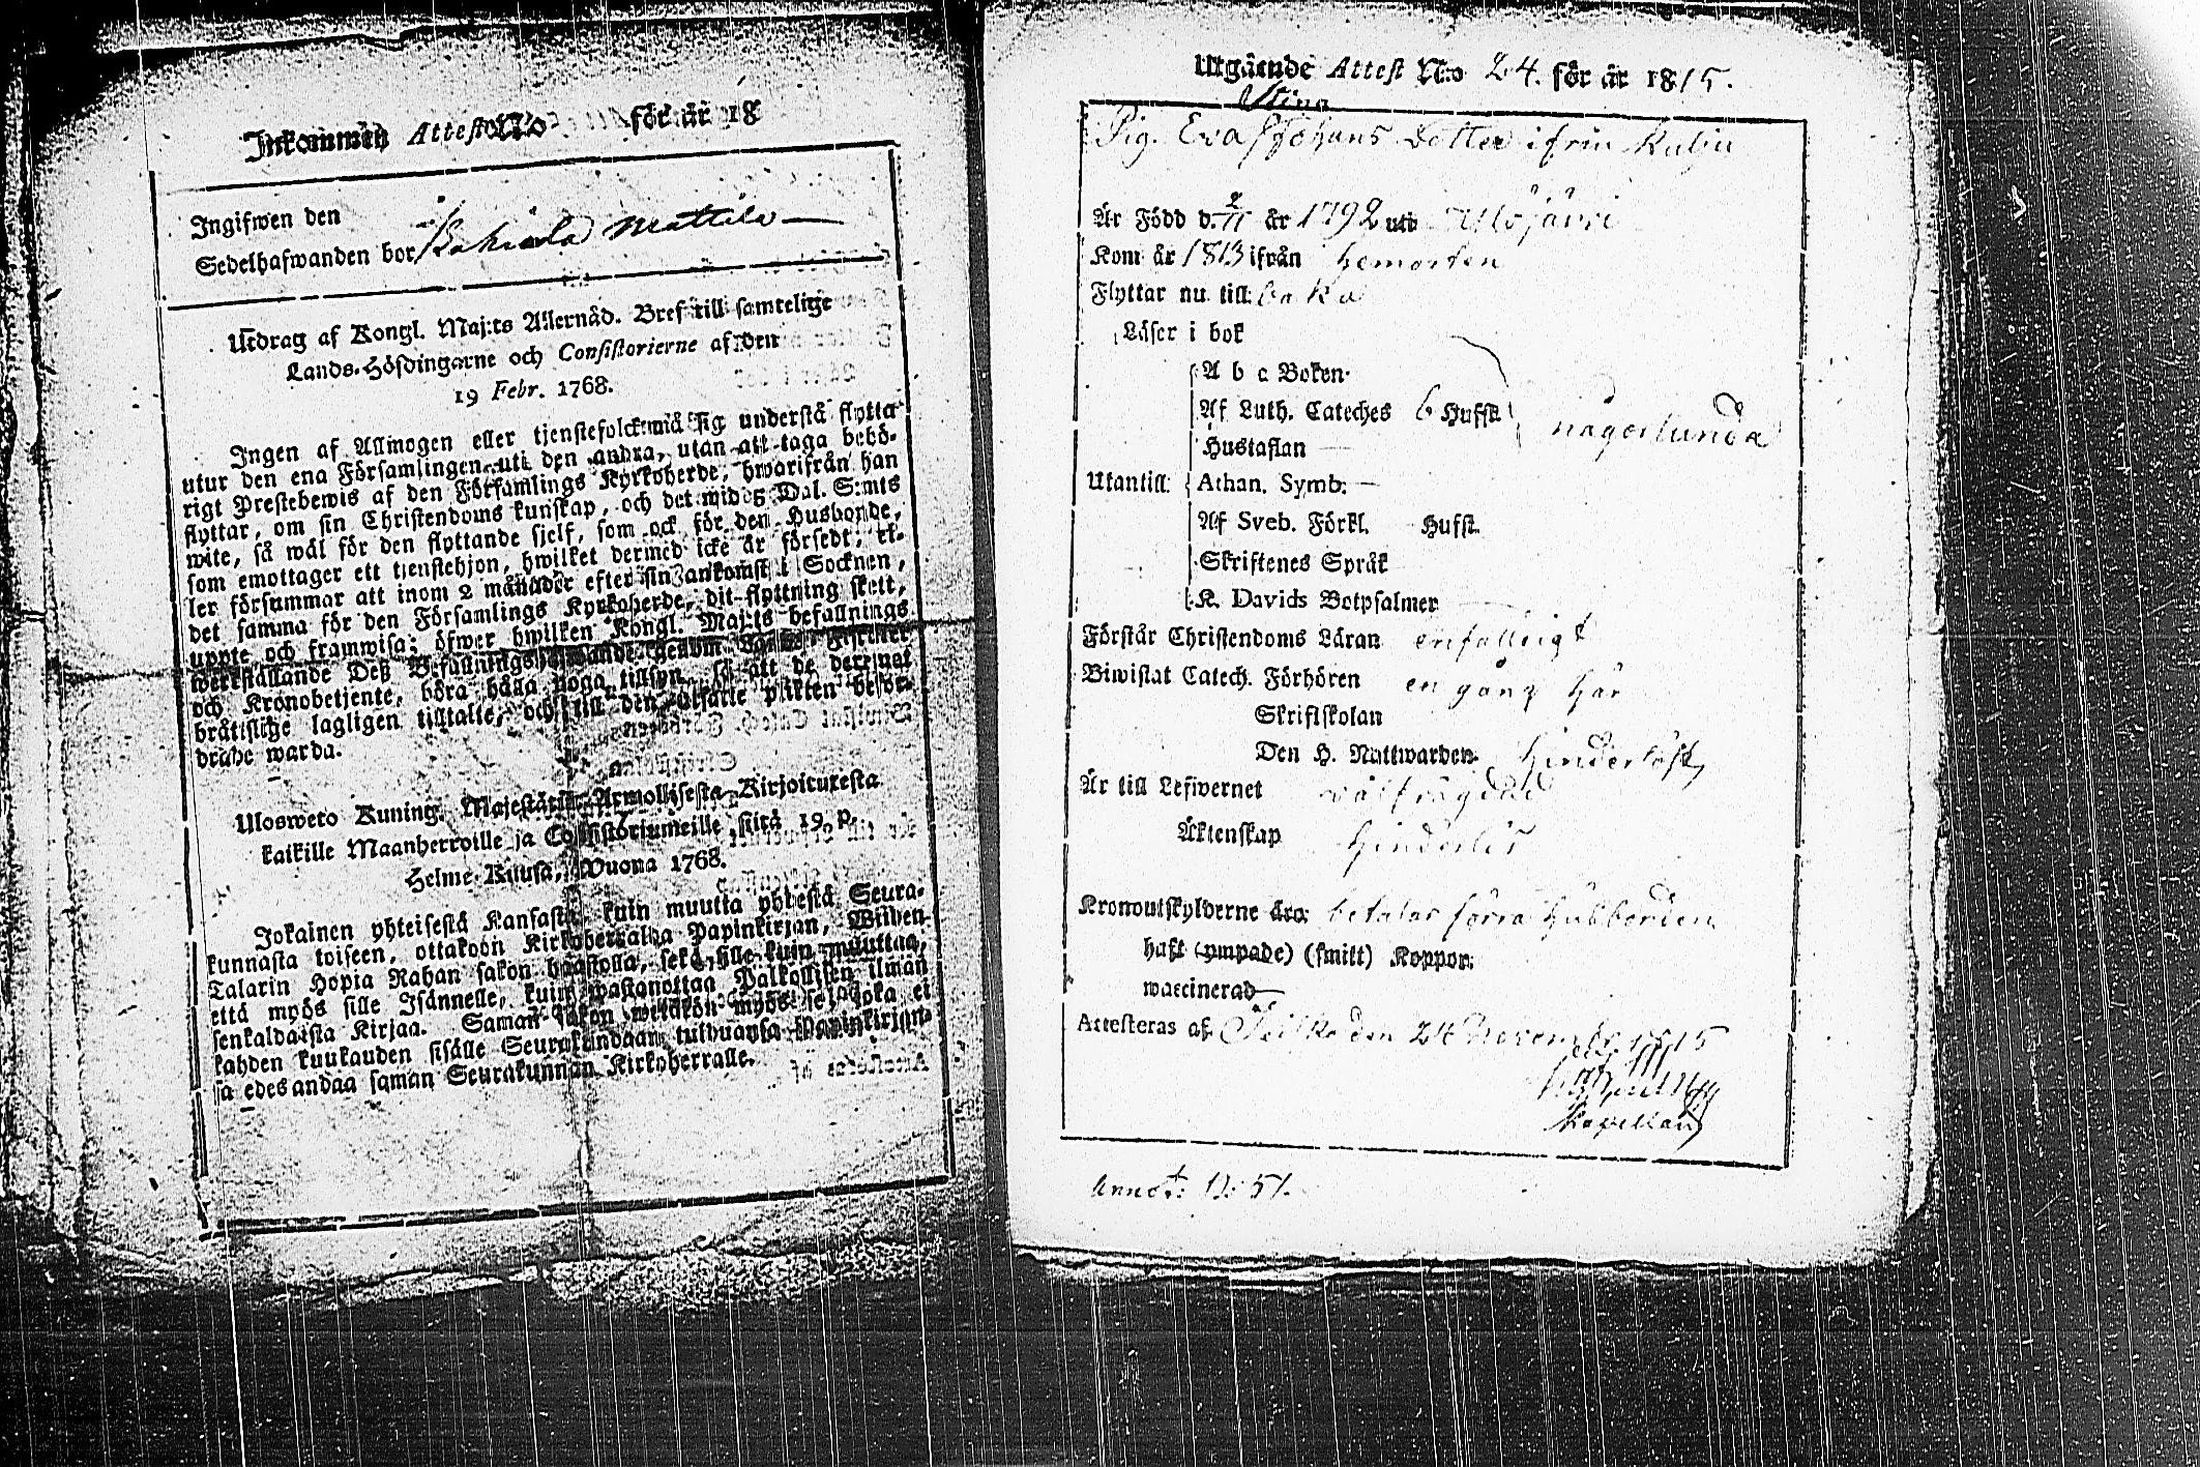 Inkommen Attest No för år 18
Ingifwen den
Sedelhafwanden bor Kahiala Mattila
Utdrag af Kongl. Maj:ts Allernåd. Bref till samtelige
Lands-Höfdingarne och Consistorierne af den
19 Febr. 1768.
Ingen af Allmogen eller tjenstefolck må sig understå flytta
utur den ena Församlingen uti den andra, utan att taga behö-
rigt Prestebewis af den Församlings Kyrkoherde, hwarifrån han
flyttar, om sin Christendoms kunskap, och det wid 10 Dal. S:mts
wite, så wäl för den flyttande sjelf, som ock för den Husbonde,
som emottager ett tjenstehjon, hwilket dermed icke är försedt, el-
ler försummar att inom 2 månader efter sin ankomst i Socknen,
det samma för den Församlings Kyrkoherde, dit flyttning skett,
uppte och framwisa; öfwer hwilken Kongl. Maj:ts befallnings
werkställande Deß Befallningshafwande genom
och Kronobetjente, böra hålla noga tillsyn, så att de deremot
bråttslige lagligen tilltalte, och till den utsatte plikten beför-
drade warda.
Ulosweto Kuning. Majestätin Armollisesta Kirjoituxesta
kaikille Maanherroille ja Consistoriumeille siitä 19 p.
Helme-Kuusa, Wuona 1768.
Jokainen yhteisestä Kansasta, kuin muutta yhdestä Seura-
kunnasta toiseen, ottakoon Kirkoherralda Papinkirjan, Wiiden
Talarin Hopia Rahan sakon haastolla, sekä sille kuin muuttaa,
että myös sille Isännelle, kuin wastanottaa Palkollisen ilman
senkaldaista Kirjaa. Saman sakon wetäkön myös se, joka ei
kahden kuukauden sisälle Seurakundaan tulduansa Papinkirjan-
sa edesandaa saman Seurakunnan Kirkoherralle.
Utgående Attest No 24. för år 1815.
Stina
Pig. Eva Johans Dotter ifrån
Är Född d. 2/11 år 1792 uti Ylöjärvi
Kom år 1813 ifrån hemorten
Flyttar nu till baka
Läser i bok
A b c Boken
Af Luth. Cateches 6 Hufst. någorlunda
Hustaflan
Utantill Athan. Symb.
Af Sveb. Förkl. Hufst.
Skriftenes Språk
K. Davids Botpsalmer
Förstår Christendoms Läran enfalleigt
Biwistat Catech. Förhören en gång här
Skriftskolan
Den H. Nattwarden hinderlöst
Är till Lefwernet wälfrägdad
Äktenskap hinderlös
Kronoutskylderne äro betalar förra husbonden
haft (ympade) (smitt) Koppor.
waccinerad
Attesteras af den 24 November 1815
Kapellan
Annot: p: 51.